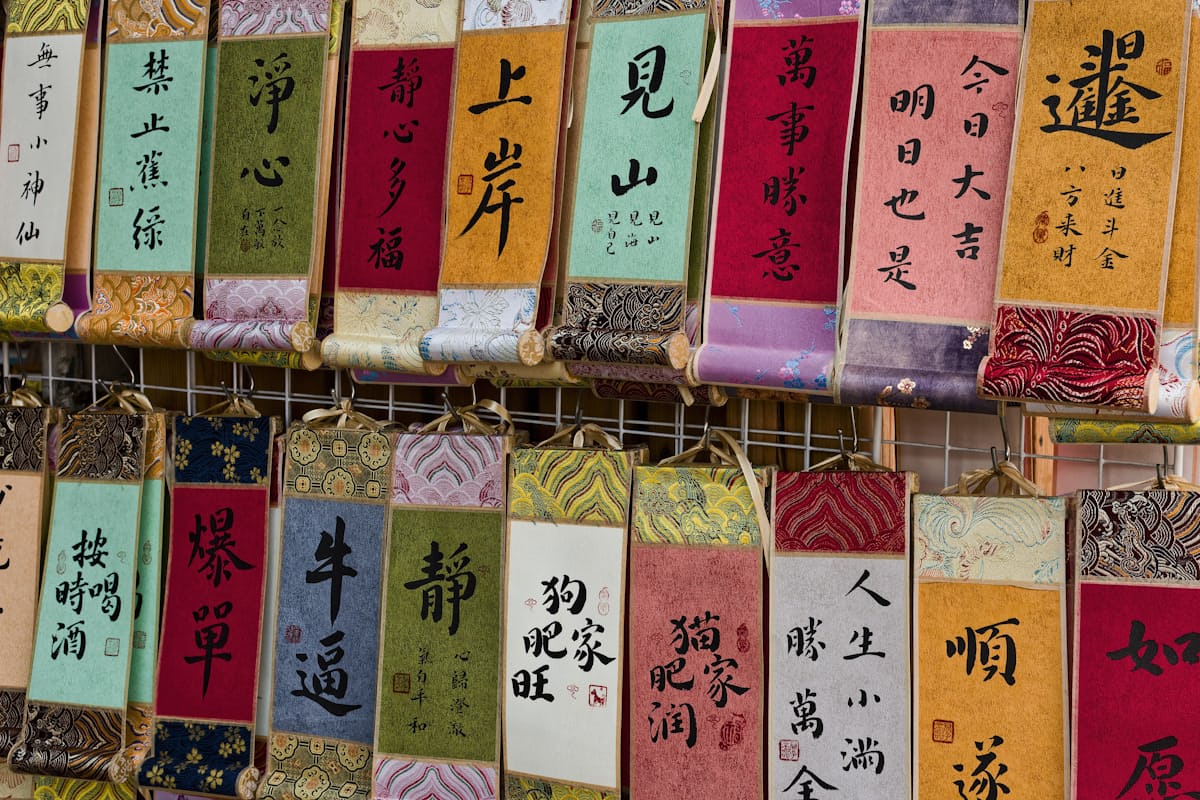 無事小神仙
禁止蕉綠
淨心
下萬般
自在
靜心多福
上岸
見山
見山
見海
見自己
萬事勝意
今日大吉
明日也是
日進斗金
八方来財
按時喝酒
爆單
牛逼
靜
心歸澄澈
氣自平和
狗肥家旺
猫肥家润
人生小滿
勝萬全
順遂
如願